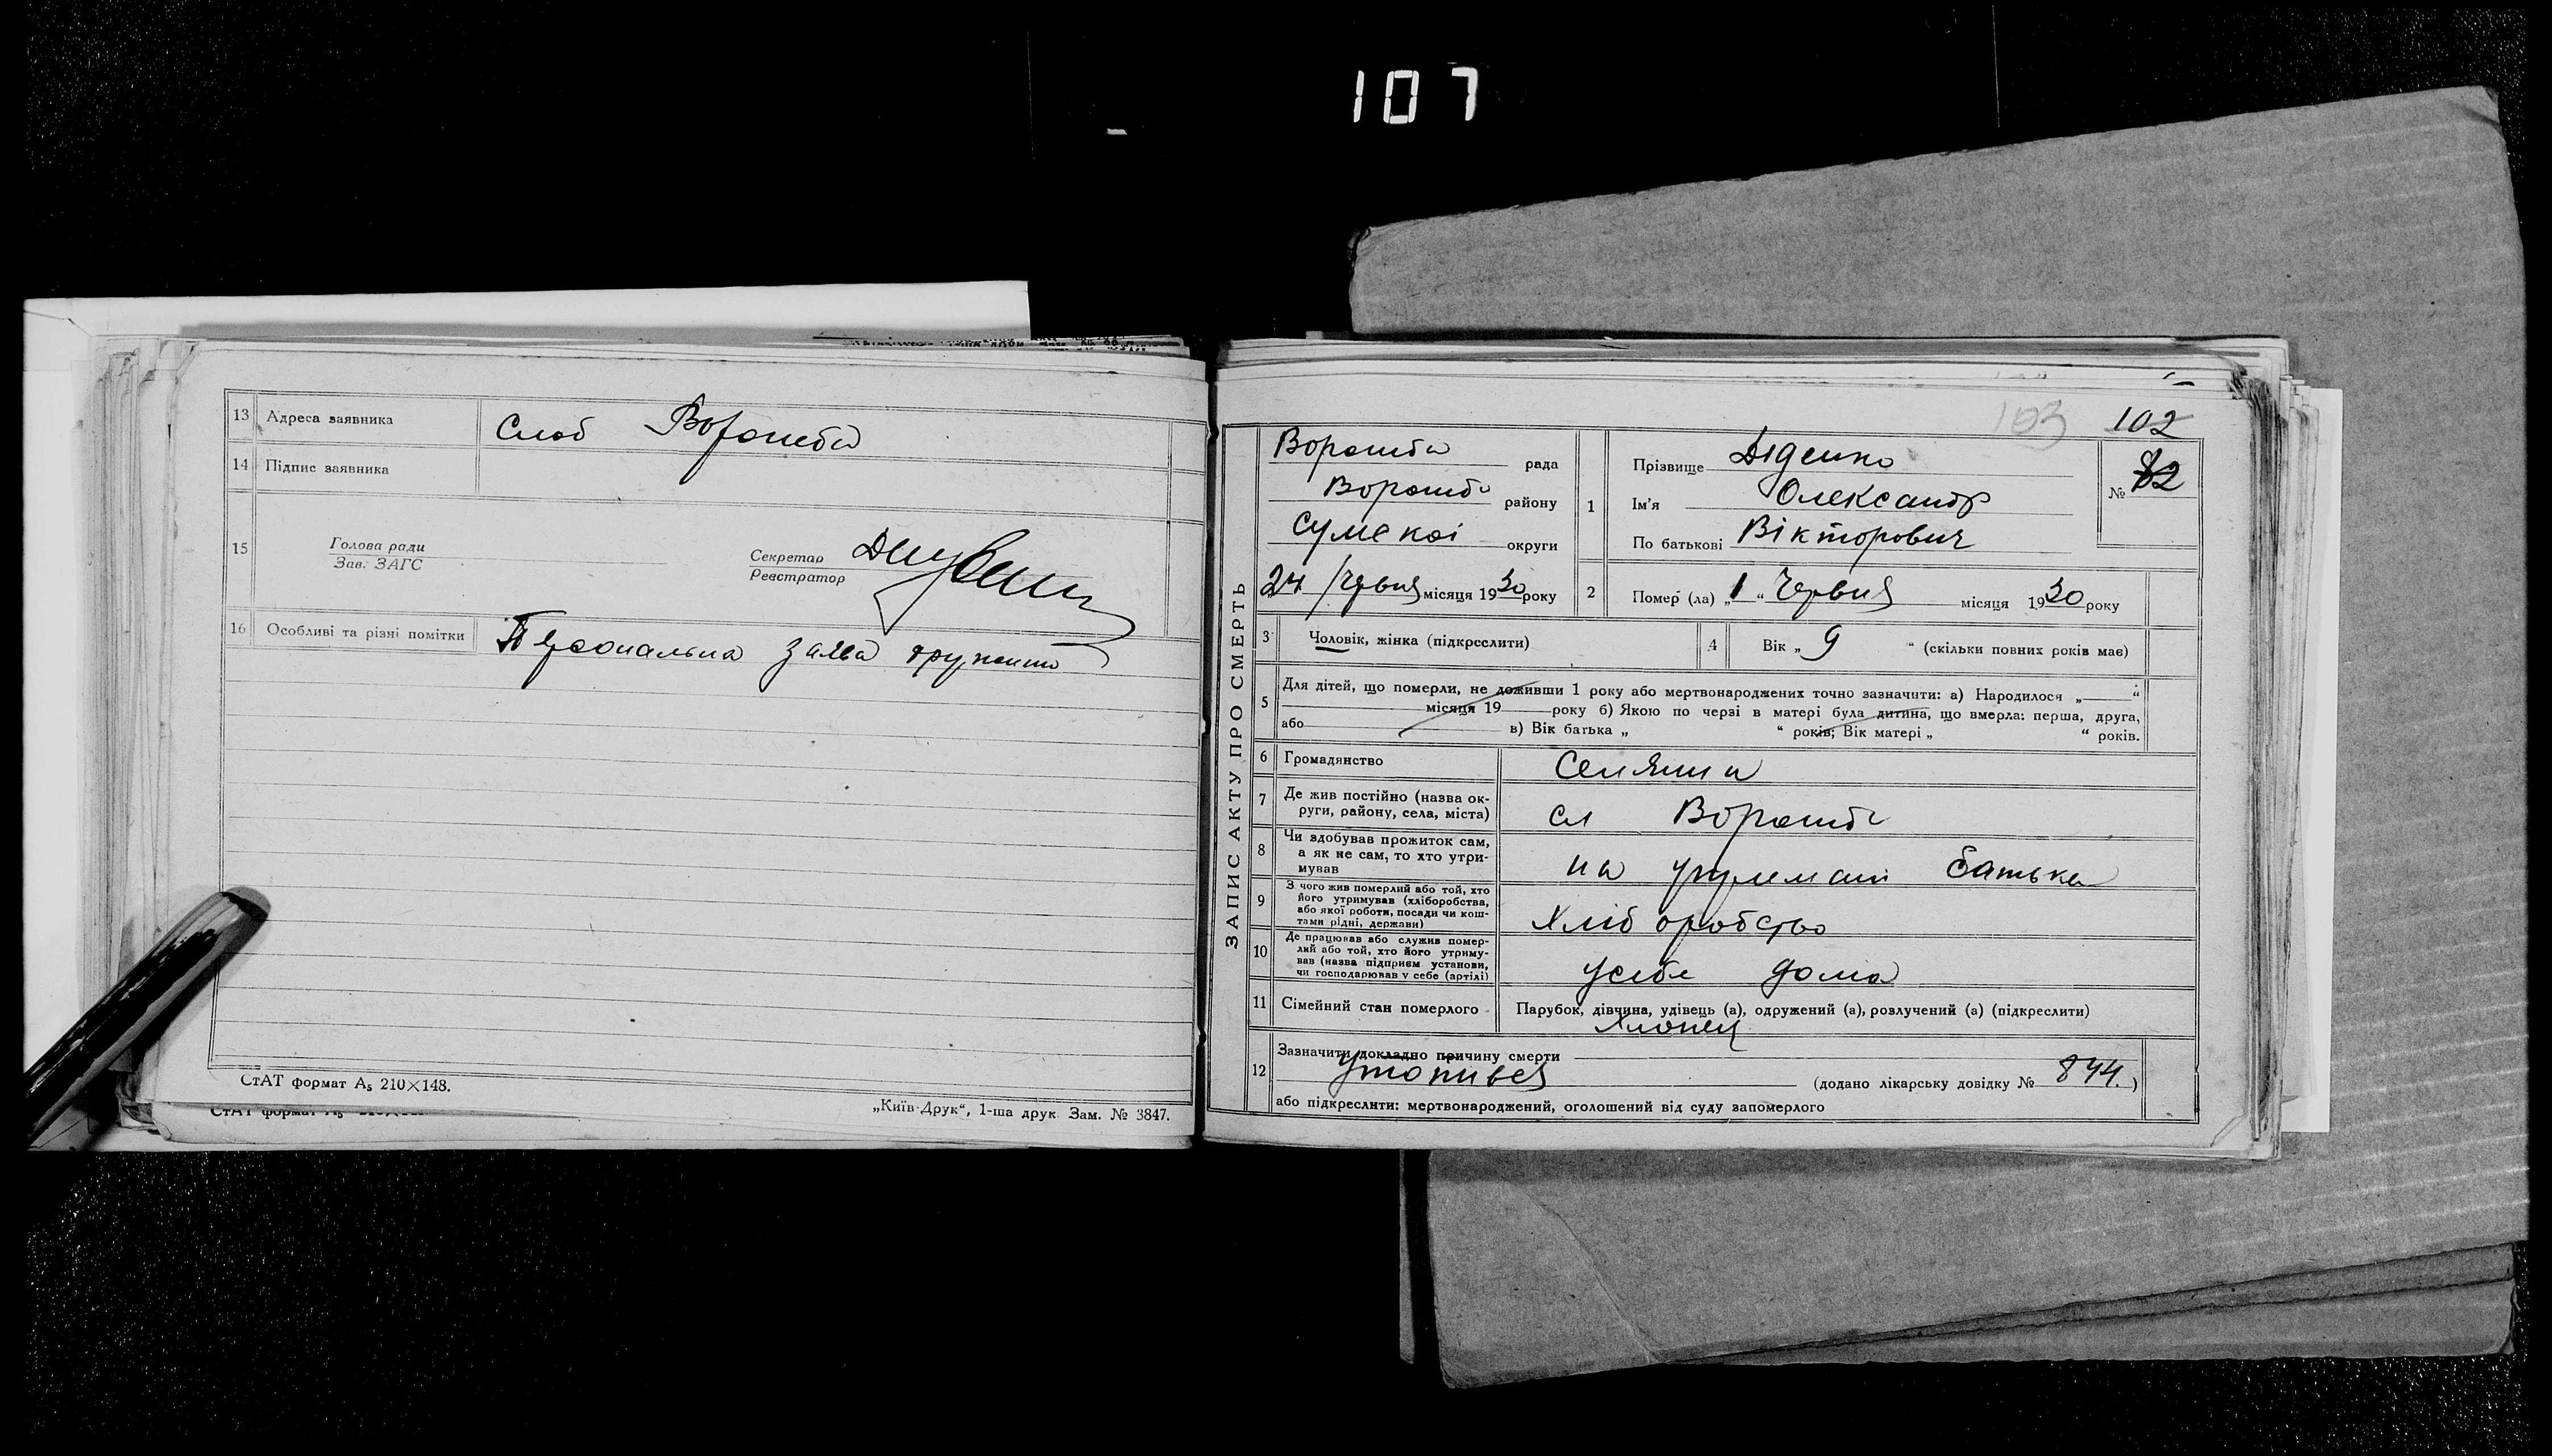 107
13 Адреса заявника Слоб Ворожба
14 Підпис заявника
15 Голова ради
Зав. ЗАГС
Секретар
Реєстратор
16 Особливі та різні помітки Персональна заява
СтАТ формат А₅ 210×148.
„Київ-Друк“, 1-ша друк. Зам. № 3847.
103 102
ЗАПИС АКТУ ПРО СМЕРТЬ
Ворожба рада
Ворожба району
Сумскоі округи
24 Червня місяця 1930 року
1 Прізвище Діденко
Ім'я Олександр
По батькові Вікторович
№ 82
2 Помер (ла) „1“ Червня місяця 1930 року
3 Чоловік, жінка (підкреслити)
4 Вік „9“ (скільки повних років має)
5 Для дітей, що померли, не доживши 1 року або мертвонароджених точно зазначити: а) Народилося „ “
місяця 19 року б) Якою по черзі в матері була дитина, що вмерла: перша, друга,
або в) Вік батька „ “ років; Вік матері „ “ років.
6 Громадянство Селянин
7 Де жив постійно (назва ок-
руги, району, села, міста) сл Ворожба
8 Чи здобував прожиток сам,
а як не сам, то хто утри-
мував на батька
9 З чого жив померлий або той, хто
його утримував (хліборобства,
або якої роботи, посади чи кош-
тами рідні, держави) Хліборобство
10 Де працював або служив помер-
лий або той, хто його утриму-
вав (назва підприєм установи,
чи господарював у себе (артілі) усебе дома
11 Сімейний стан померлого Парубок, дівчина, удівець (а), одружений (а), розлучений (а) (підкреслити)
Хлопец
12 Зазначити докладно причину смерти
Утопився (додано лікарську довідку № 844.)
або підкреслити: мертвонароджений, оголошений від суду запомерлого